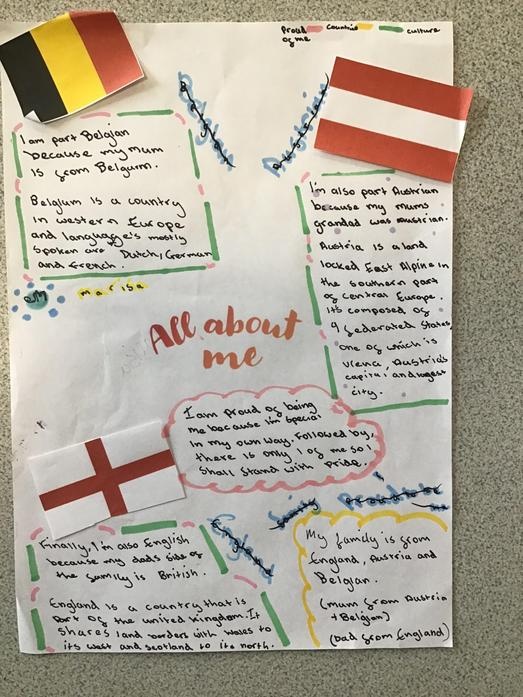 Proud of me
Countries
culture
Belgian
Austrian
I am part Belgian
because my mum
is from Belgum.
Belgium is a country
in western Europe
and language's mostly
spoken are Dutch, German
and french.
I'm also part Austrian
because my mums
grandad was Austrian.
Austria is a land
locked East Alpine in
the southern part
of central Europe.
Its composed of
9 federated states
one of which is
viena, Austria's
capital and largest
city.
Marisa
All about
me
I am proud of being
me because I'm special
in my own way. Followed by,
there is only 1 of me so I
shall stand with pride.
England
Finally, I'm also English
because my dads side of
the family is British.
England is a country that is
part of the united kingdom. It
shares land borders with Wales to
its west and scotland to its north.
My family is from
England, Austria and
Belgian.
(mum from Austria
+ Belgian)
(Dad from England)